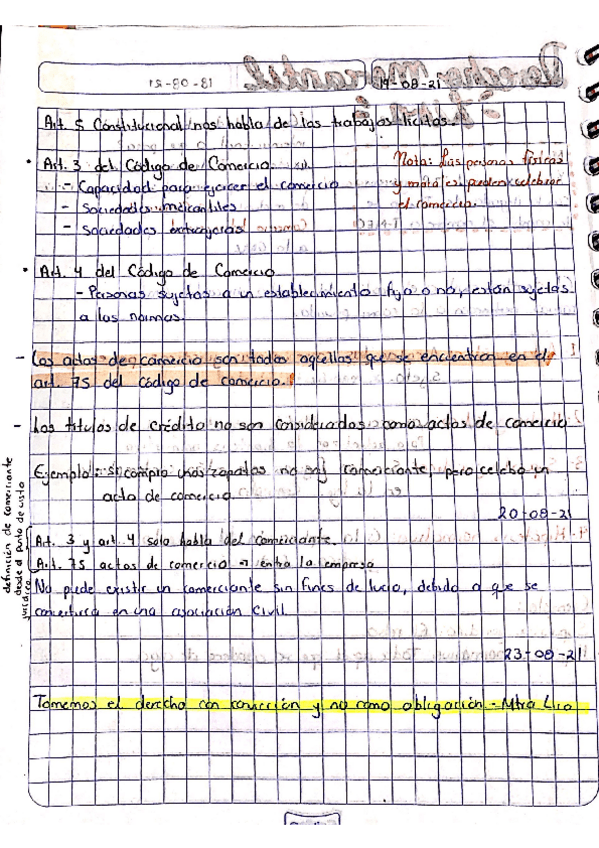 19-08-21
Art. 5 Constitucional nos habla de los trabajos lícitos.
• Art. 3 del Código de Comercio.
- Capacidad para ejercer el comercio
- Sociedades mercantiles
- Sociedades extranjeras
Nota: Las personas físicas
y morales pueden celebrar
el comercio.
• Art. 4 del Código de Comercio
- Personas sujetas a un establecimiento fijo o no, están sujetas
a las normas.
- Los actos de comercio son todos aquellas que se encuentran en el
art. 75 del código de comercio.
- Los títulos de crédito no son considerados como actos de comercio
Ejemplo: si compro unos zapatos no soy comerciante, pero celebro un
acto de comercio.
20-08-21
definición de comerciante
desde el punto de vista
jurídico
Art. 3 y art. 4 solo habla del comerciante.
Art. 75 actos de comercio → entra la empresa
No puede existir un comerciante sin fines de lucro, debido a que se
convertiría en una asociación civil.
23-08-21
Tomemos el derecho con convicción y no como obligación - Mtra Lira